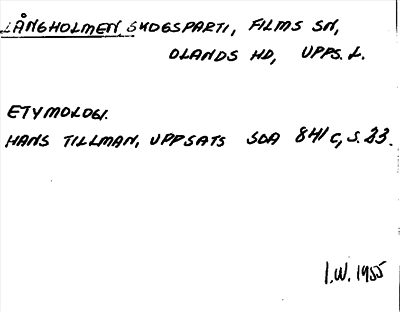 LÅNGHOLMEN SKOGSPARTI, FILMS SN,
OLANDS HD, UPPS. L.
ETYMOLOGI.
HANS TILLMAN, UPPSATS SOA 841 C, S. 33.
I.W. 1955